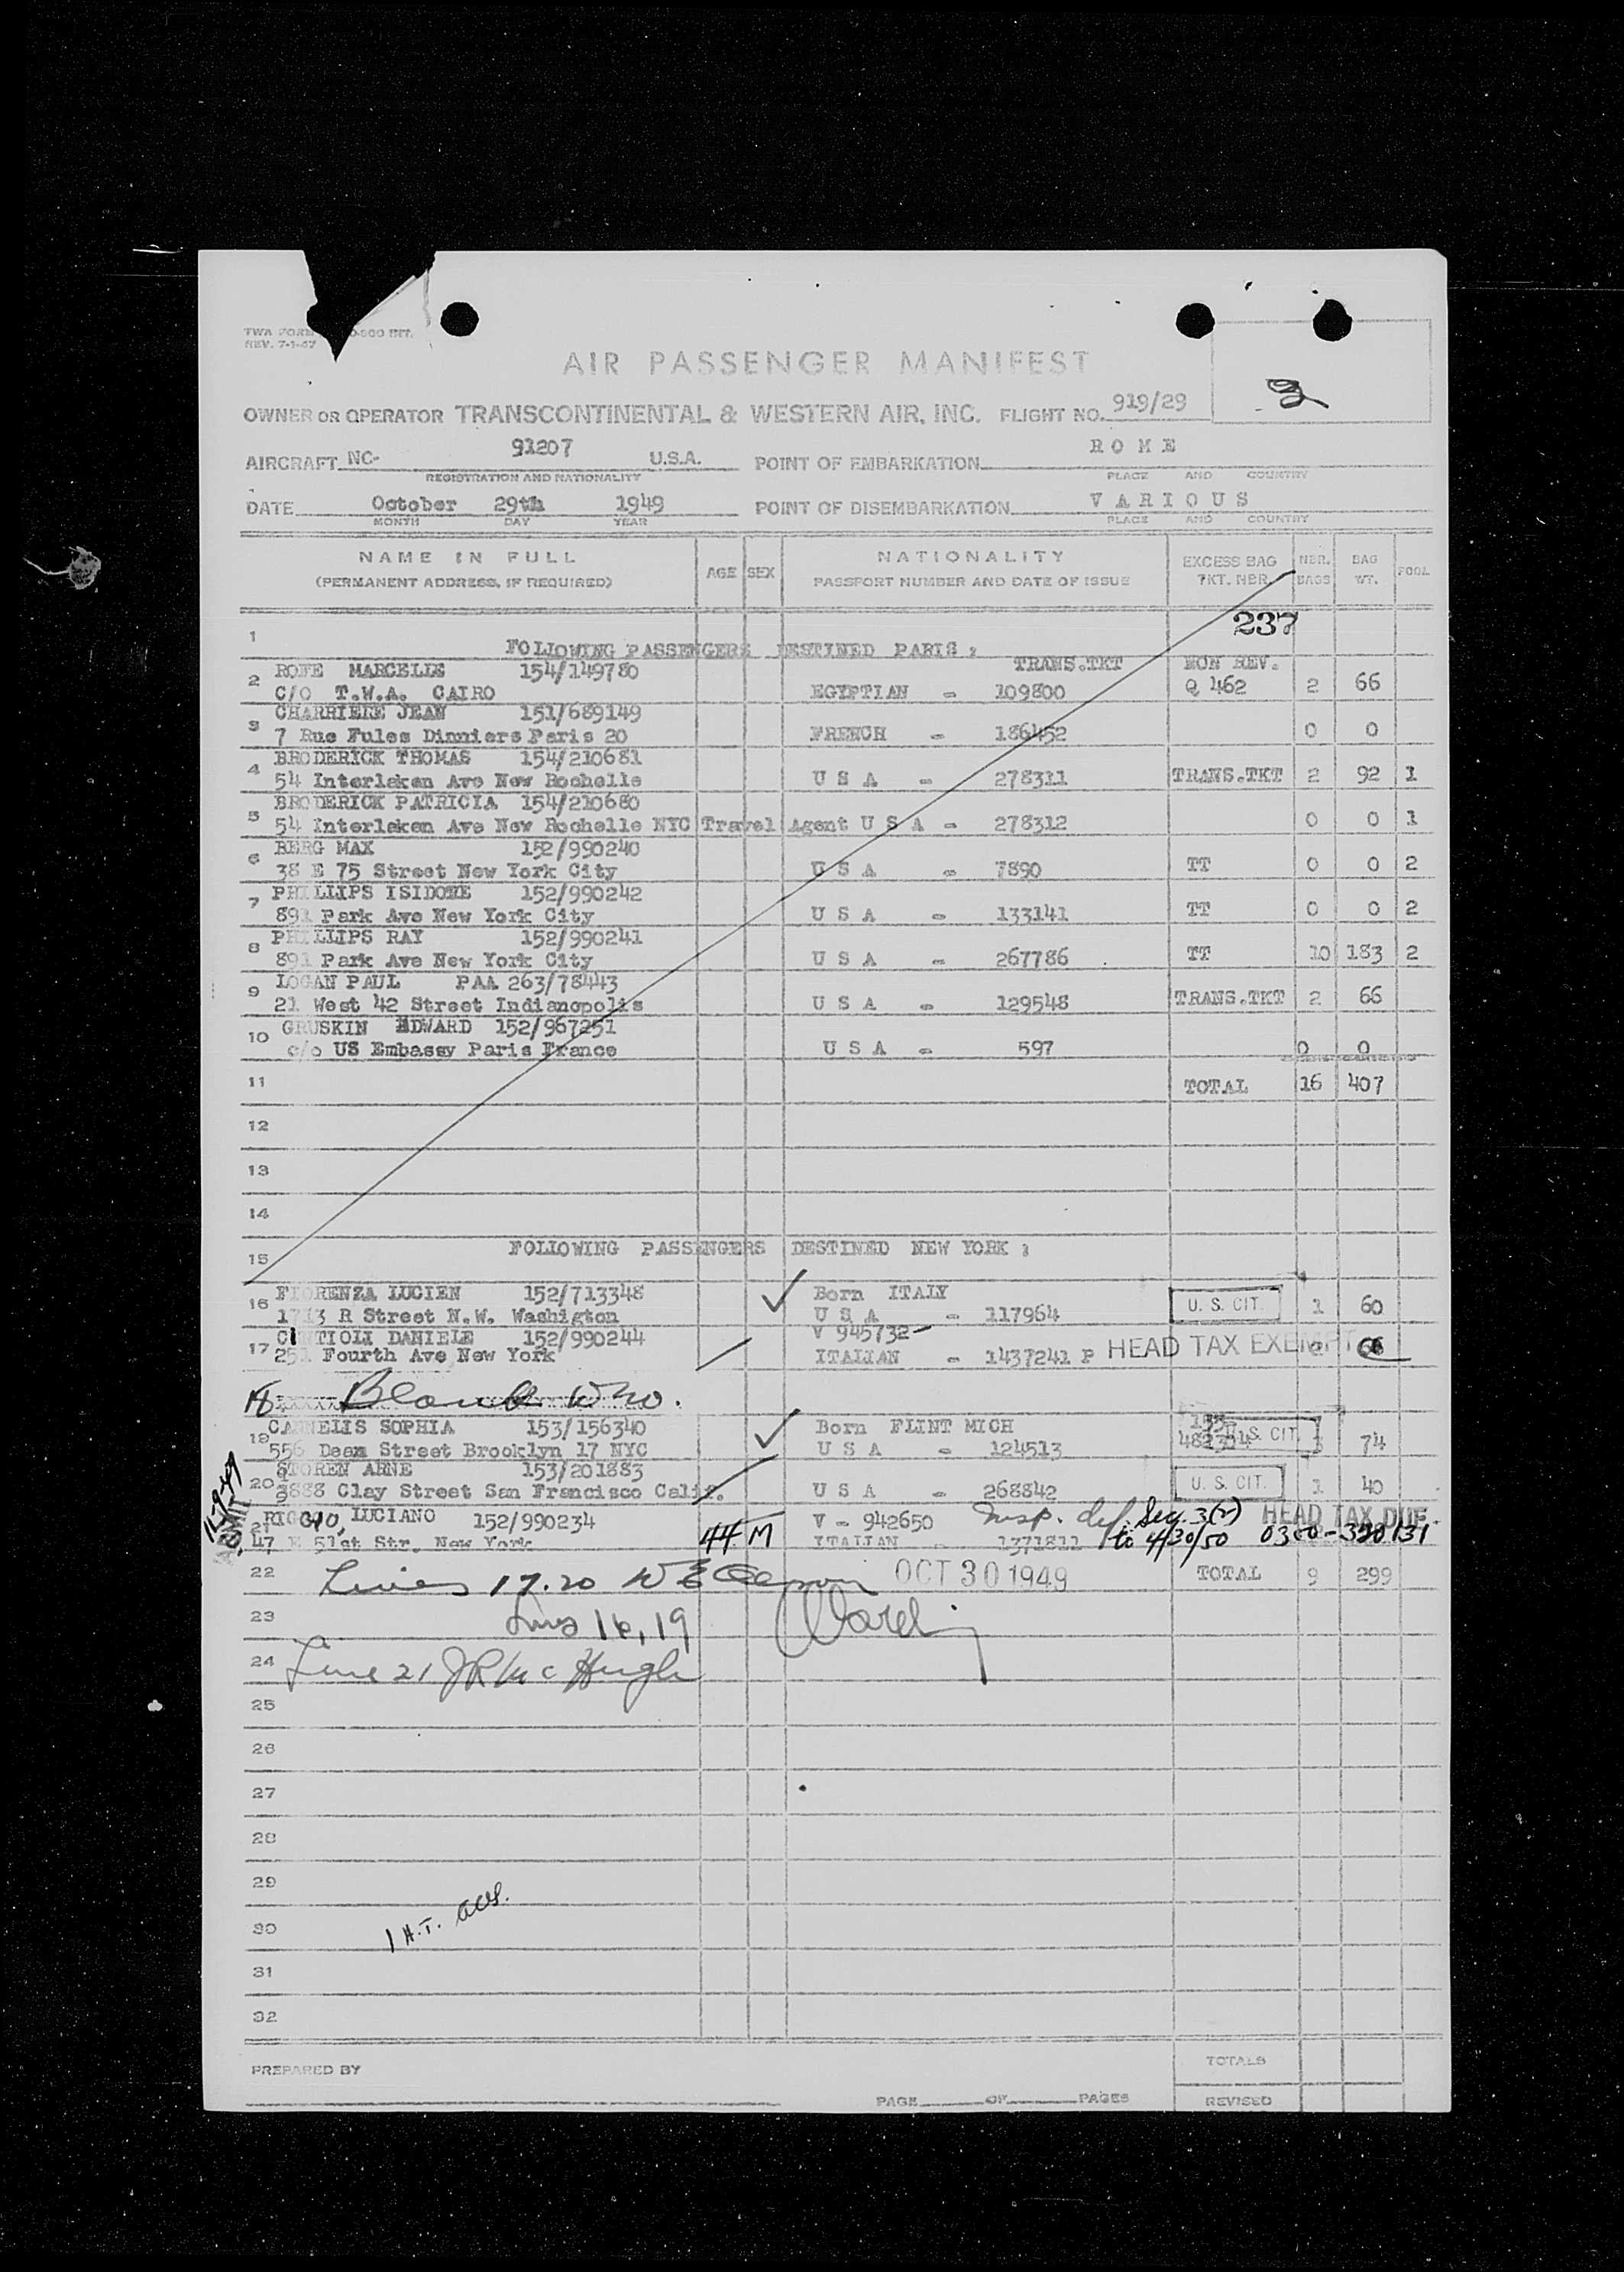 TWA FORM 0-900 INT.
REV. 7-1-47
AIR PASSENGER MANIFEST
OWNER OR OPERATOR TRANSCONTINENTAL & WESTERN AIR, INC. FLIGHT NO. 919/29
AIRCRAFT NC- 91207 U.S.A. POINT OF EMBARKATION ROME
REGISTRATION AND NATIONALITY PLACE AND COUNTRY
DATE October 29th 1949 POINT OF DISEMBARKATION VARIOUS
MONTH DAY YEAR PLACE AND COUNTRY
NAME IN FULL AGE SEX NATIONALITY EXCESS BAG NBR. BAG POOL
(PERMANENT ADDRESS, IF REQUIRED) PASSPORT NUMBER AND DATE OF ISSUE TKT. NBR. BAGS WT.
237
1 FOLLOWING PASSENGERS DESTINED PARIS :
2 ROFE MARCELLE 154/149780 TRANS.TKT NON REV.
C/O T.W.A. CAIRO EGYPTIAN - 109800 Q 462 2 66
3 CHARRIERE JEAN 151/689149
7 Rue Fules Dinniers Paris 20 FRENCH - 186452 0 0
4 BRODERICK THOMAS 154/210681
54 Interlaken Ave New Rochelle U S A - 278311 TRANS.TKT 2 92 1
5 BRODERICK PATRICIA 154/210680
54 Interlaken Ave New Rochelle NYC Travel Agent U S A - 278312 0 0 1
6 BERG MAX 152/990240
38 E 75 Street New York City U S A - 7890 TT 0 0 2
7 PHILLIPS ISIDORE 152/990242
891 Park Ave New York City U S A - 133141 TT 0 0 2
8 PHILLIPS RAY 152/990241
891 Park Ave New York City U S A - 267786 TT 10 183 2
9 LOGAN PAUL PAA 263/78443
21 West 42 Street Indianopolis U S A - 129548 TRANS.TKT 2 66
10 GRUSKIN EDWARD 152/967251
c/o US Embassy Paris France U S A - 597 0 0
11 TOTAL 16 407
12
13
14
15 FOLLOWING PASSENGERS DESTINED NEW YORK :
16 FIORENZA LUCIEN 152/713348 Born ITALY
1713 R Street N.W. Washigton U S A - 117964 U. S. CIT. 1 60
17 TIOLI DANIELE 152/990244 V 945732
251 Fourth Ave New York ITALIAN - 1437241 P HEAD TAX EXEMPT
18 Blank
19 CARNELIS SOPHIA 153/156340 Born FLINT MICH
556 Dean Street Brooklyn 17 NYC U S A - 124513 U. S. CIT. 3 74
20 STOREN ARNE 153/201883
3888 Clay Street San Francisco Calif. U S A - 268842 U. S. CIT. 1 40
21 RIGGIO, LUCIANO 152/990234 V - 942650 Insp. def. Sec. 3(2) HEAD TAX DUE
47 E 51st Str. New York 44 M ITALIAN - 1371811 to 4/30/50 0300-390131
ADMIT 11-9-49
22 Lines 17.20 OCT 30 1949 TOTAL 9 299
23 Lines 16,19
24 Line 21 JR McHugh
25
26
27
28
29
30 1 H.T.
31
32
TOTALS
PREPARED BY
PAGE OF PAGES REVISED